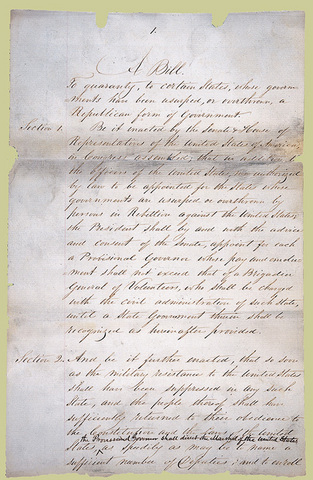 1.
A Bill.
To guaranty, to certain States, whose govern-
ments have been usurped, or overthrown, a
Republican form of Government.
Section 1. Be it enacted by the Senate & House of
Representatives of the United States of America
in Congress assembled, that in
the officers of the United States,
by law to be appointed for the States whose
governments are usurped or overthrown by
persons in Rebellion against the United States,
the President shall by and with the advice
and consent of the Senate, appoint for each
a Provisional Governor whose pay and emolu-
ment shall not exceed that of a Brigadier
General of Volunteers, who shall be charged
with the civil administration of such State,
until a State Government therein shall be
recognized as hereinafter provided.
Section 2. And be it further enacted, that so soon
as the military resistance to the United States
shall have been suppressed in any such
State, and the people thereof shall have
sufficiently returned to their obedience to
the Constitution and the laws of the United
the Provisional Governor shall direct the Marshal of the United States
States, as speedily as may be to name a
sufficient number of Deputies; and to enroll